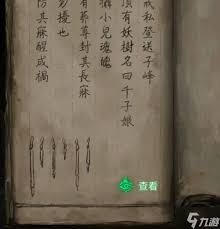 戒私登送子峰
頂有妖樹名曰千子娘
攝小兒魂魄
有菩尊封其長寐
易擾也
防其寐醒成禍
查看
九游